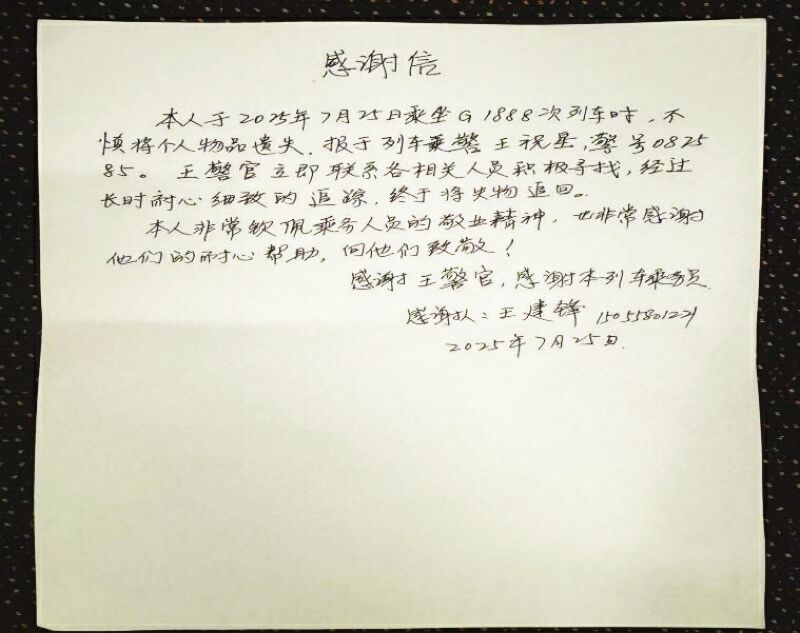 感谢信
本人于2025年7月25日乘坐G1888次列车时，不
慎将个人物品遗失，报于列车乘警王祝星，警号0825
85。王警官立即联系各相关人员积极寻找，经过
长时耐心细致的追踪，终于将失物追回。
本人非常钦佩乘务人员的敬业精神，也非常感谢
他们的耐心帮助，向他们致敬！
感谢王警官，感谢本列车乘务员
感谢人：王建锋
2025年7月25日